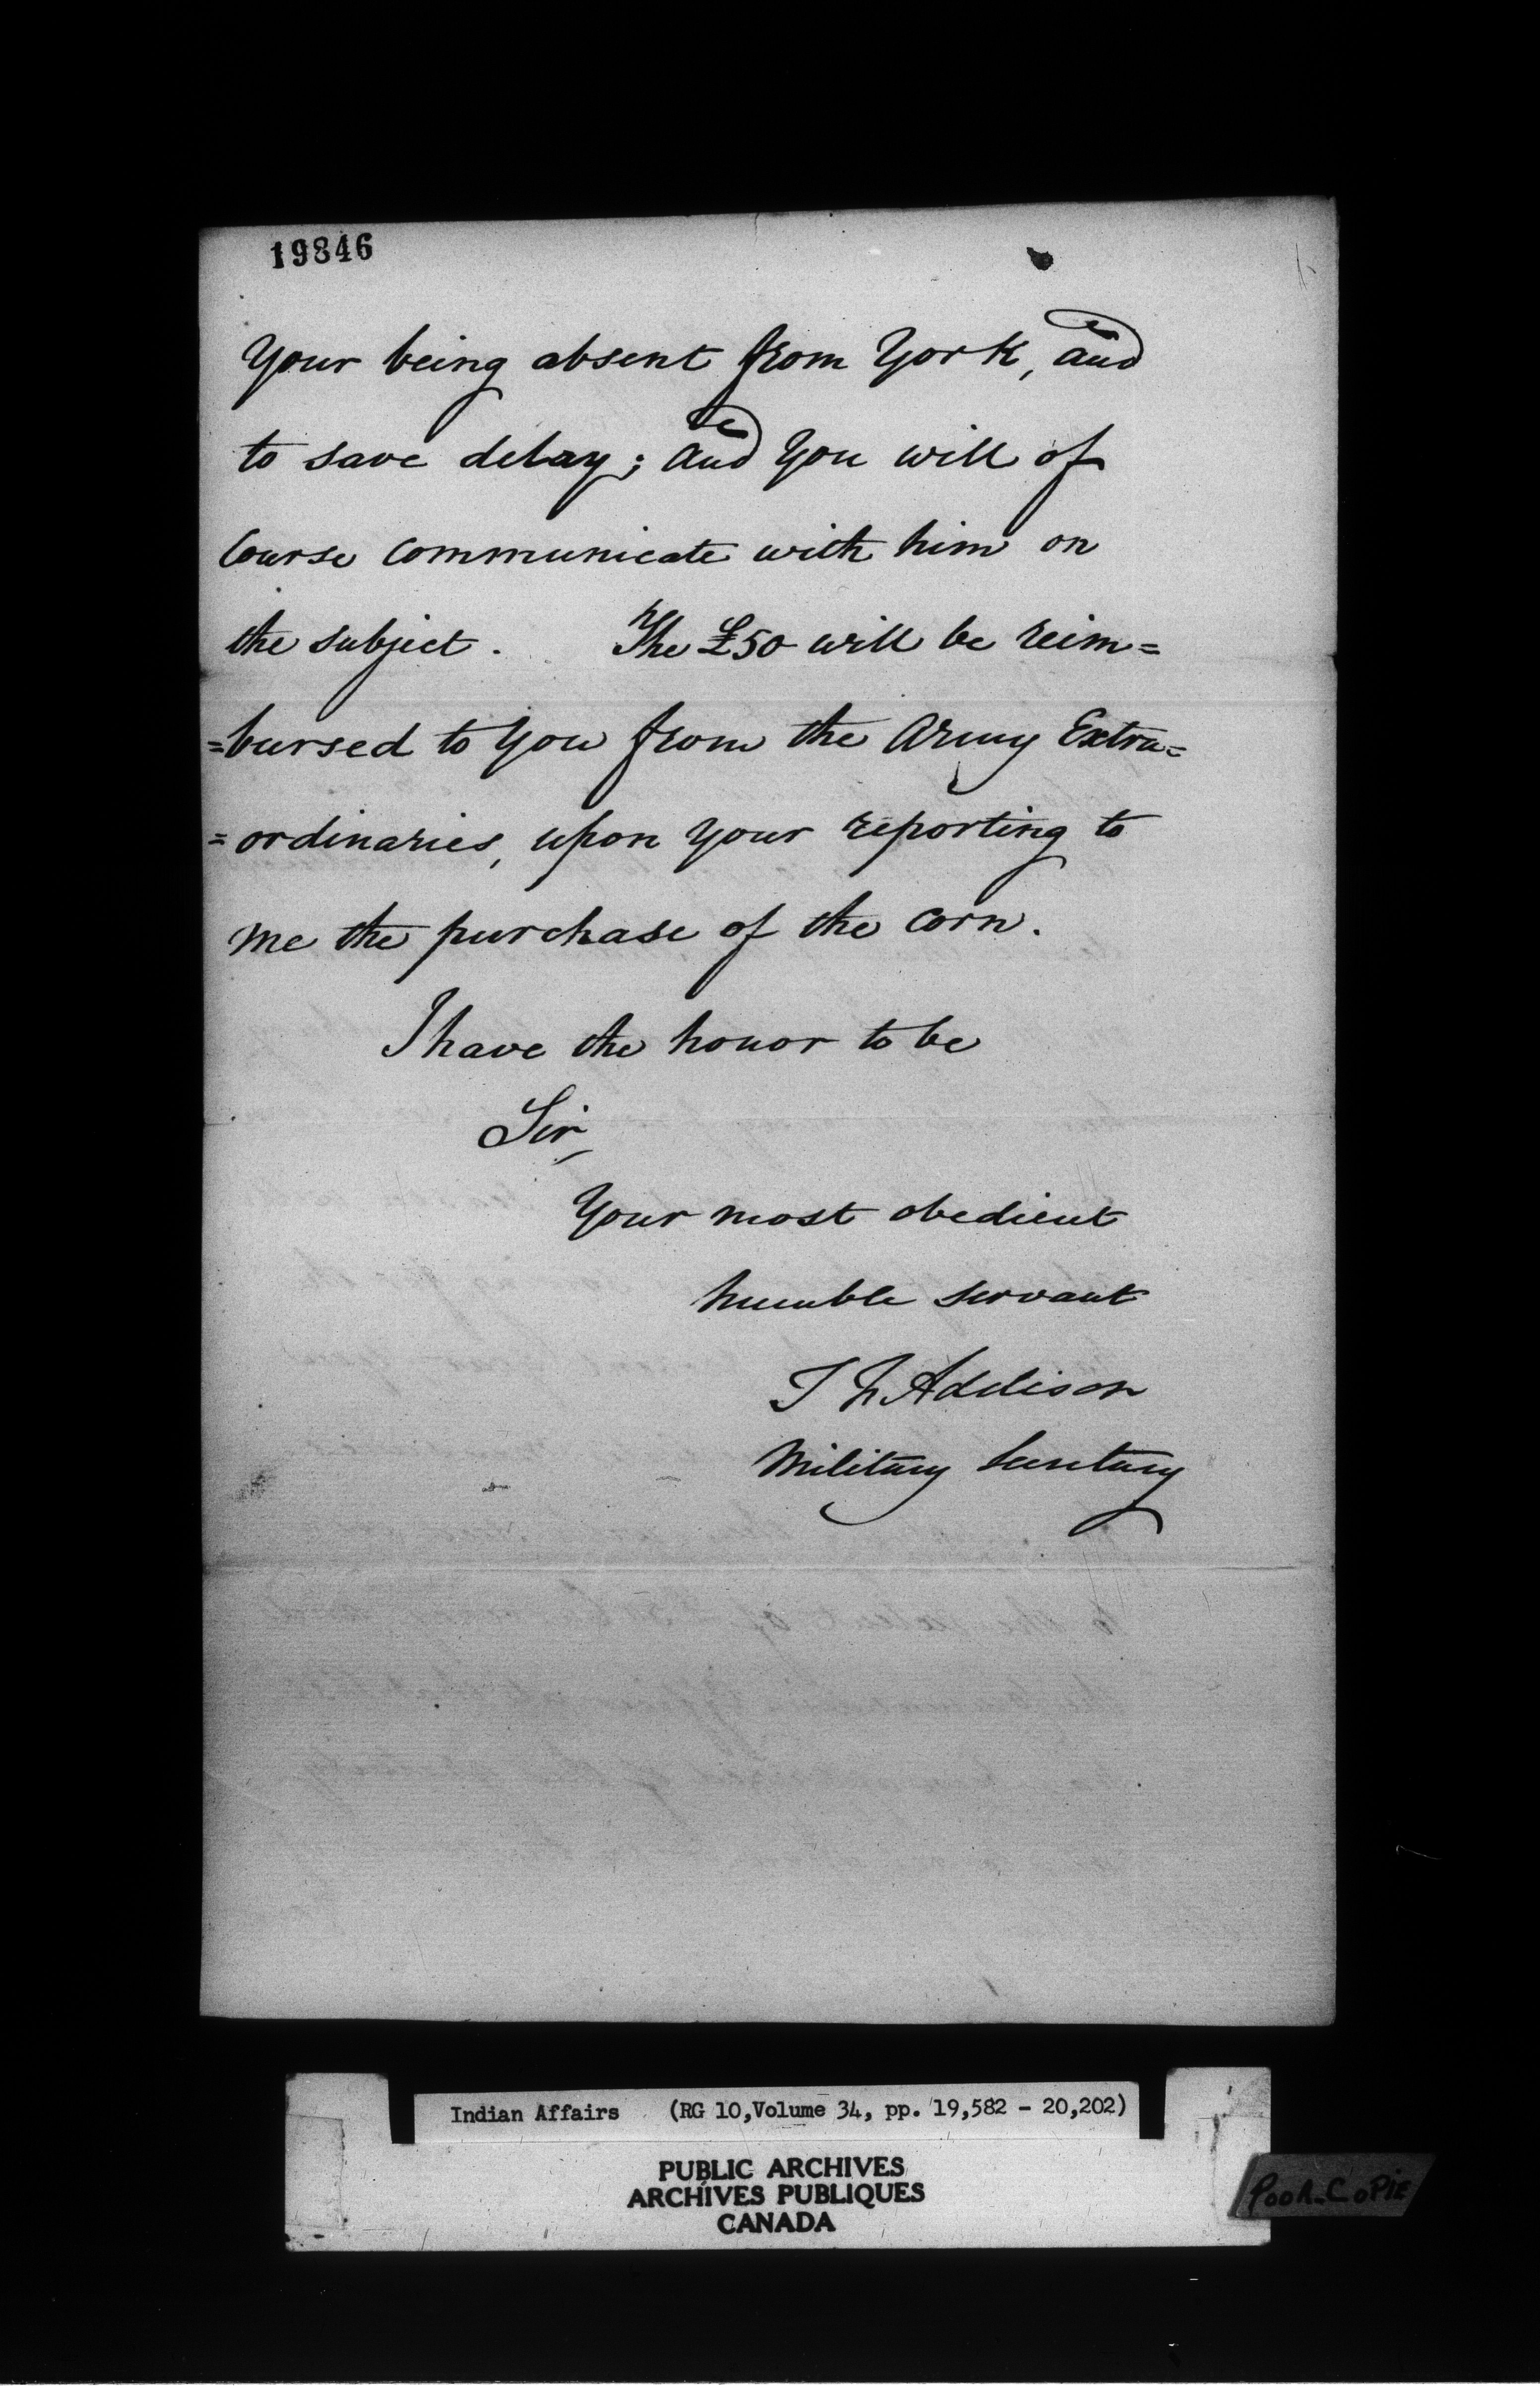 19846
Your being absent from York, and
to save delay; and You will of
Course Communicate with him on
the subject. The £50 will be reim=
=bursed to You from the Army Extra=
=ordinaries, upon Your reporting to
me the purchase of the Corn.
I have the honor to be
Sir,
Your most obedient
humble servant
T h Addison
Military Secretary
Indian Affairs (RG 10, Volume 34, pp. 19,582 - 20,202)
PUBLIC ARCHIVES
ARCHIVES PUBLIQUES
CANADA
POOR COPIE